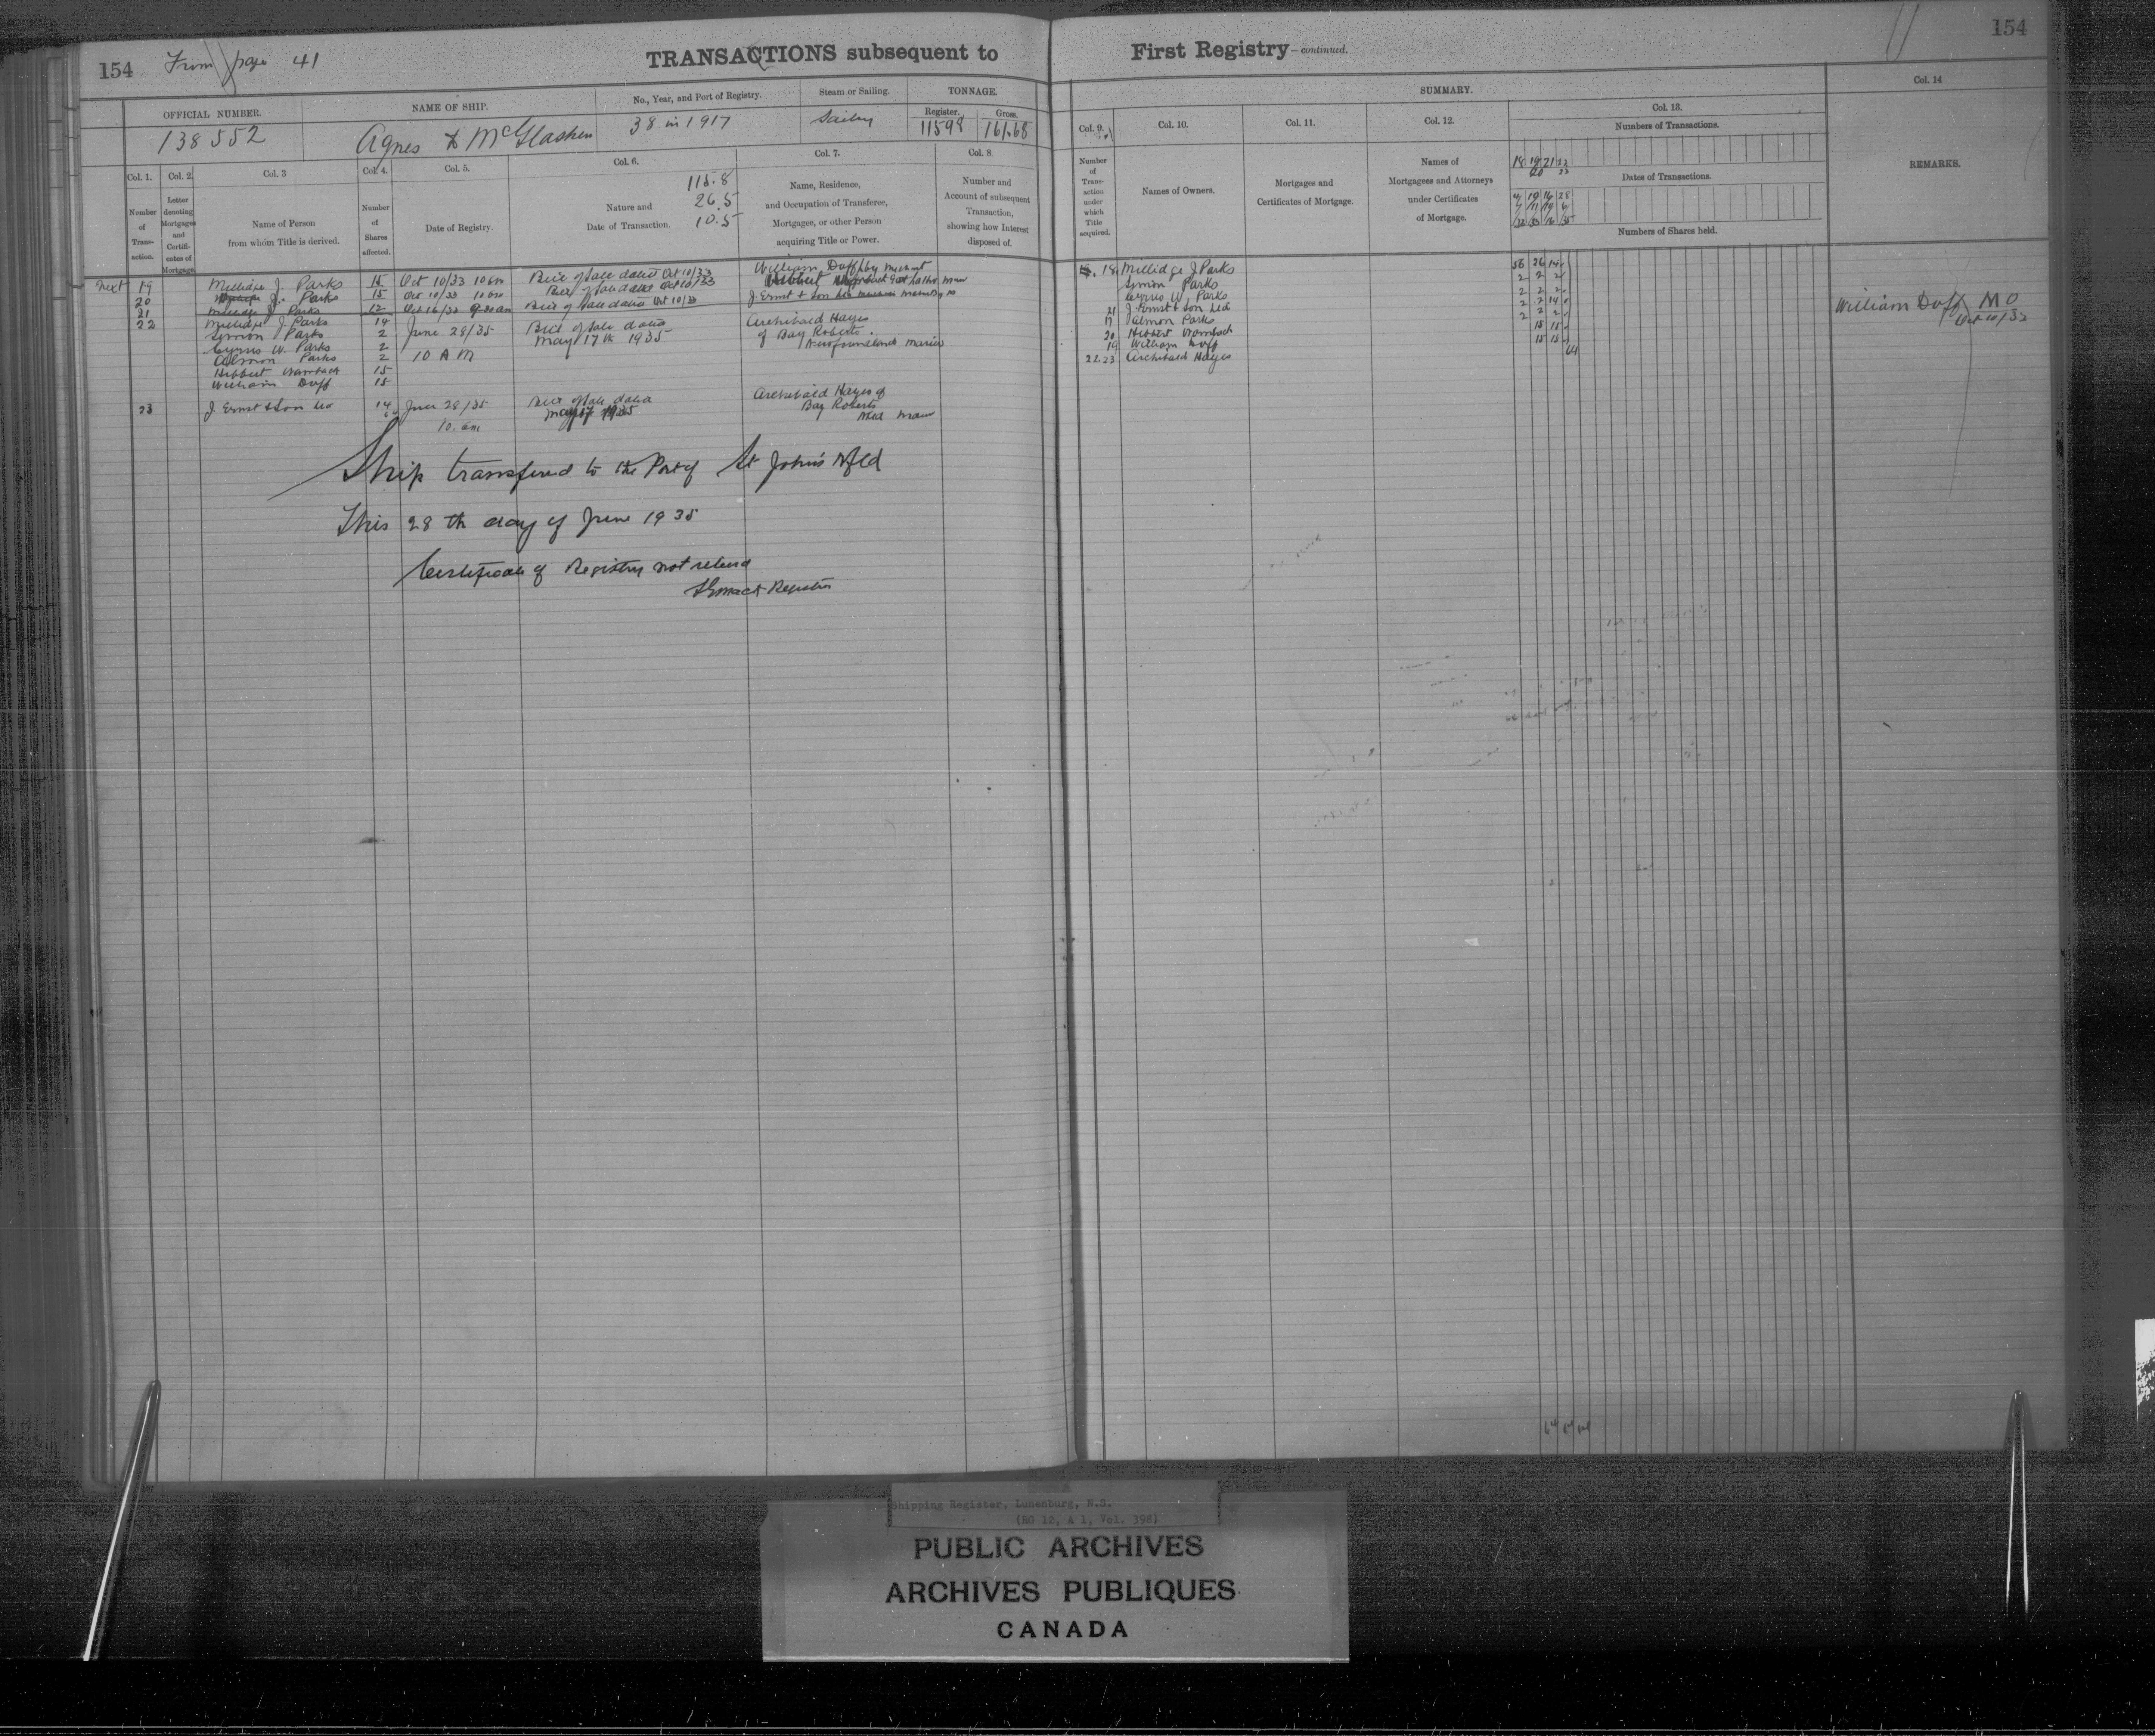 154 From page 41
TRANSACTIONS subsequent to
OFFICIAL NUMBER.
NAME OF SHIP.
No., Year, and Port of Registry.
Steam or Sailing.
TONNAGE.
Register.
Gross.
138552
Agnes McGlashen
38 in 1917
Sailing
11598
161.68
Col. 1.
Col. 2.
Col. 3
Col. 4.
Col. 5.
Col. 6.
Col. 7.
Col. 8.
Number of Trans-action.
Letter denoting Mortgages and Certifi-cates of Mortgage.
Name of Person
from whom Title is derived.
Number of Shares affected.
Date of Registry.
Nature and
Date of Transaction.
115.8
26.5
10.5
Name, Residence,
and Occupation of Transferee,
Mortgagee, or other Person
acquiring Title or Power.
Number and
Account of subsequent
Transaction,
showing how Interest
disposed of.
next 19 Millidge J. Parks 15 Oct 10/33 10 am Bill of Sale dated Oct 10/33 William Duff
20 J. Parks 15 Oct 10/33 10 am Bill of Sale dated Oct 10/33
21 Millidge J. Parks 12 Oct 16/33 Bill of Sale dated Oct 10/33 J. Ernst & Son Ltd
22 Millidge J. Parks 14 June 28/35 Bill of Sale dated Archibald Hayes
Simon Parks 2 10 AM May 17th 1935 of Bay Roberts
Cyrus W. Parks 2 Newfoundland
Almon Parks 2
Hibbert Wambach 15
William Duff 15
23 J. Ernst & Son Ltd 14 June 28/35 Bill of Sale dated Archibald Hayes of
10. am May 17 1935 Bay Roberts
Nfld
Ship transfered to the Port of St John's Nfld
This 28th day of June 1935
Certificate of Registry not
Registrar
First Registry—continued.
154
SUMMARY.
Col. 9.
Col. 10.
Col. 11.
Col. 12.
Col. 13.
Col. 14
Number of Trans-action under which Title acquired.
Names of Owners.
Mortgages and
Certificates of Mortgage.
Names of
Mortgagees and Attorneys
under Certificates
of Mortgage.
Numbers of Transactions.
18 19 21 22
20 23
Dates of Transactions.
Numbers of Shares held.
REMARKS.
18 Millidge J Parks
Simon Parks
Cyrus W. Parks
21 J Ernst & Son Ltd
17 Almon Parks
20 Hibbert Wambach
19 William Duff
22.23 Archibald Hayes 64
William Duff MO
Oct 10/33
Shipping Register, Lunenburg, N.S.
(RG 12, A 1, Vol. 398)
PUBLIC ARCHIVES
ARCHIVES PUBLIQUES
CANADA